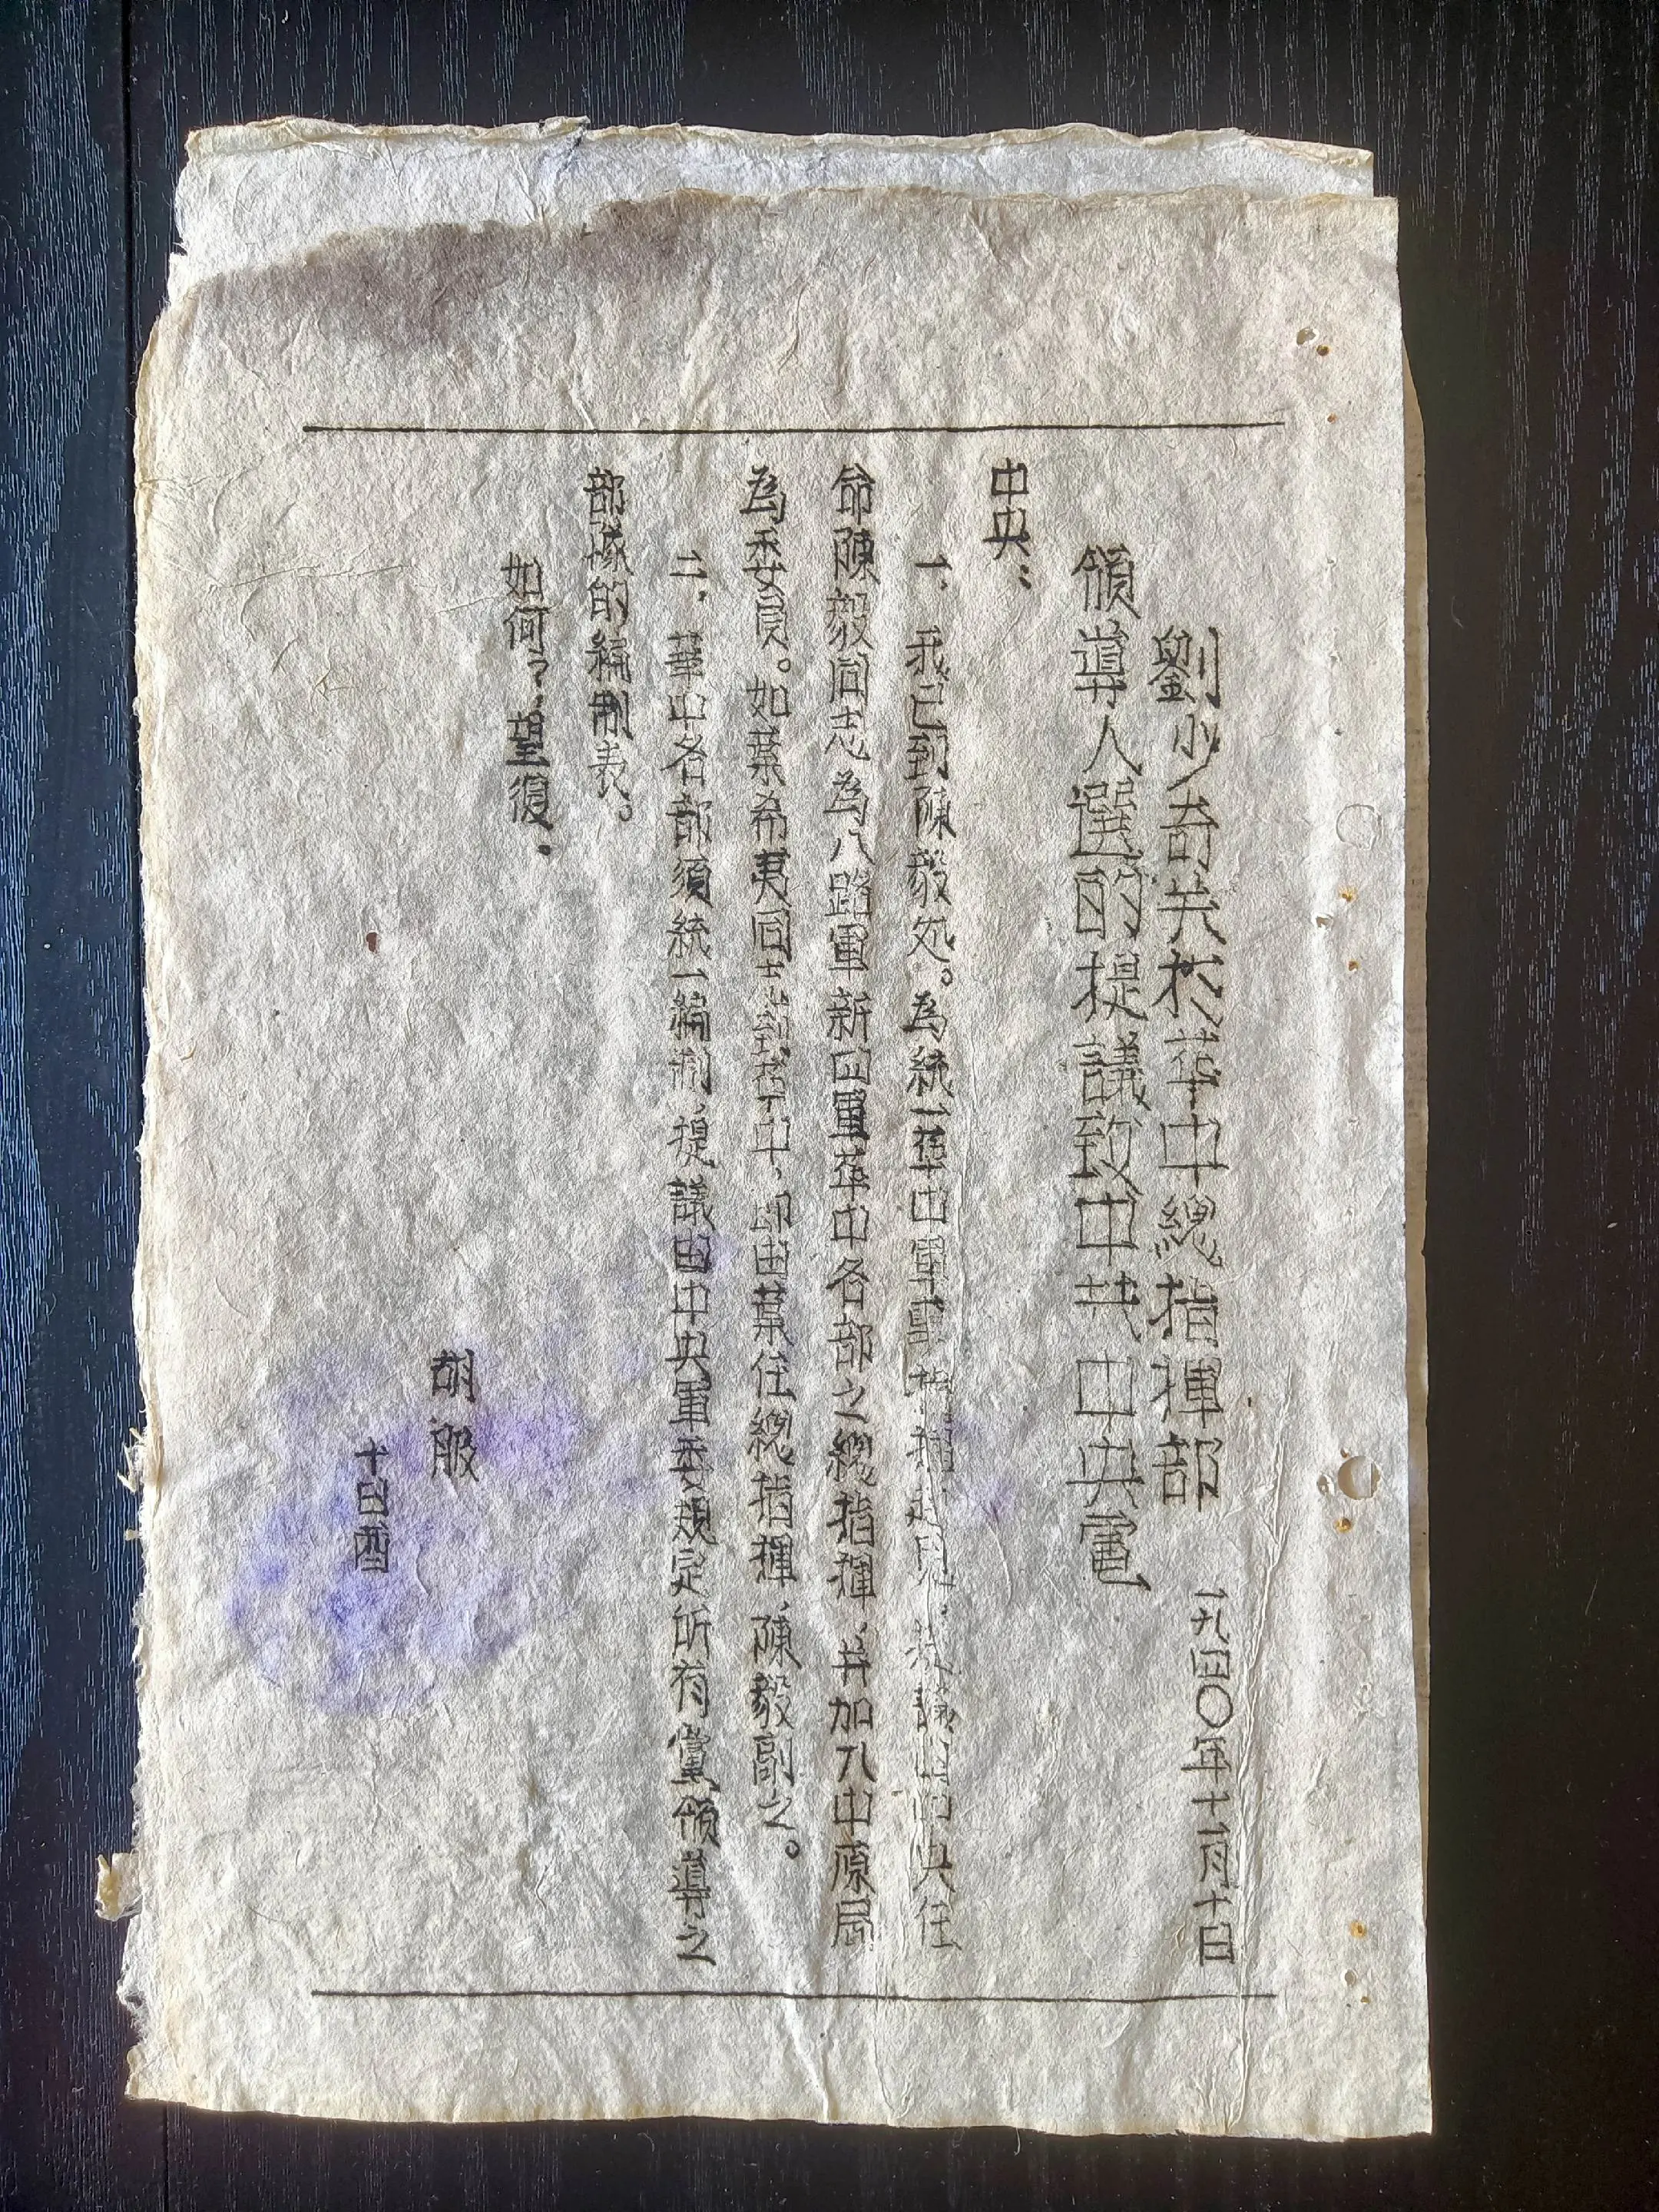 劉少奇关於华中總指揮部
領導人選的提議致中共中央電
一九四〇年十一月十日
中央：
一、我已到陳毅処。為統一华中軍事指揮起見，提議由中央任
命陳毅同志為八路軍新四軍华中各部之總指揮，并加入中原局
為委員。如葉希夷同志到华中，即由葉任總指揮，陳毅副之。
二，華中各部須統一編制，提議由中央軍委規定所有黨領導之
部隊的編制表。
如何？望復．
胡服
十日酉